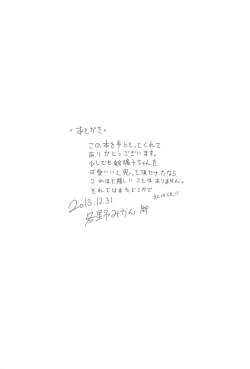 ・あとがき・
この本を手にとってくれて
ありがとうございます。
少しでも紗陽子ちゃんを
可愛いいと思って頂けたなら
これほど嬉しいことはありません。
それではまたどこかで
2015.12.31
みかん